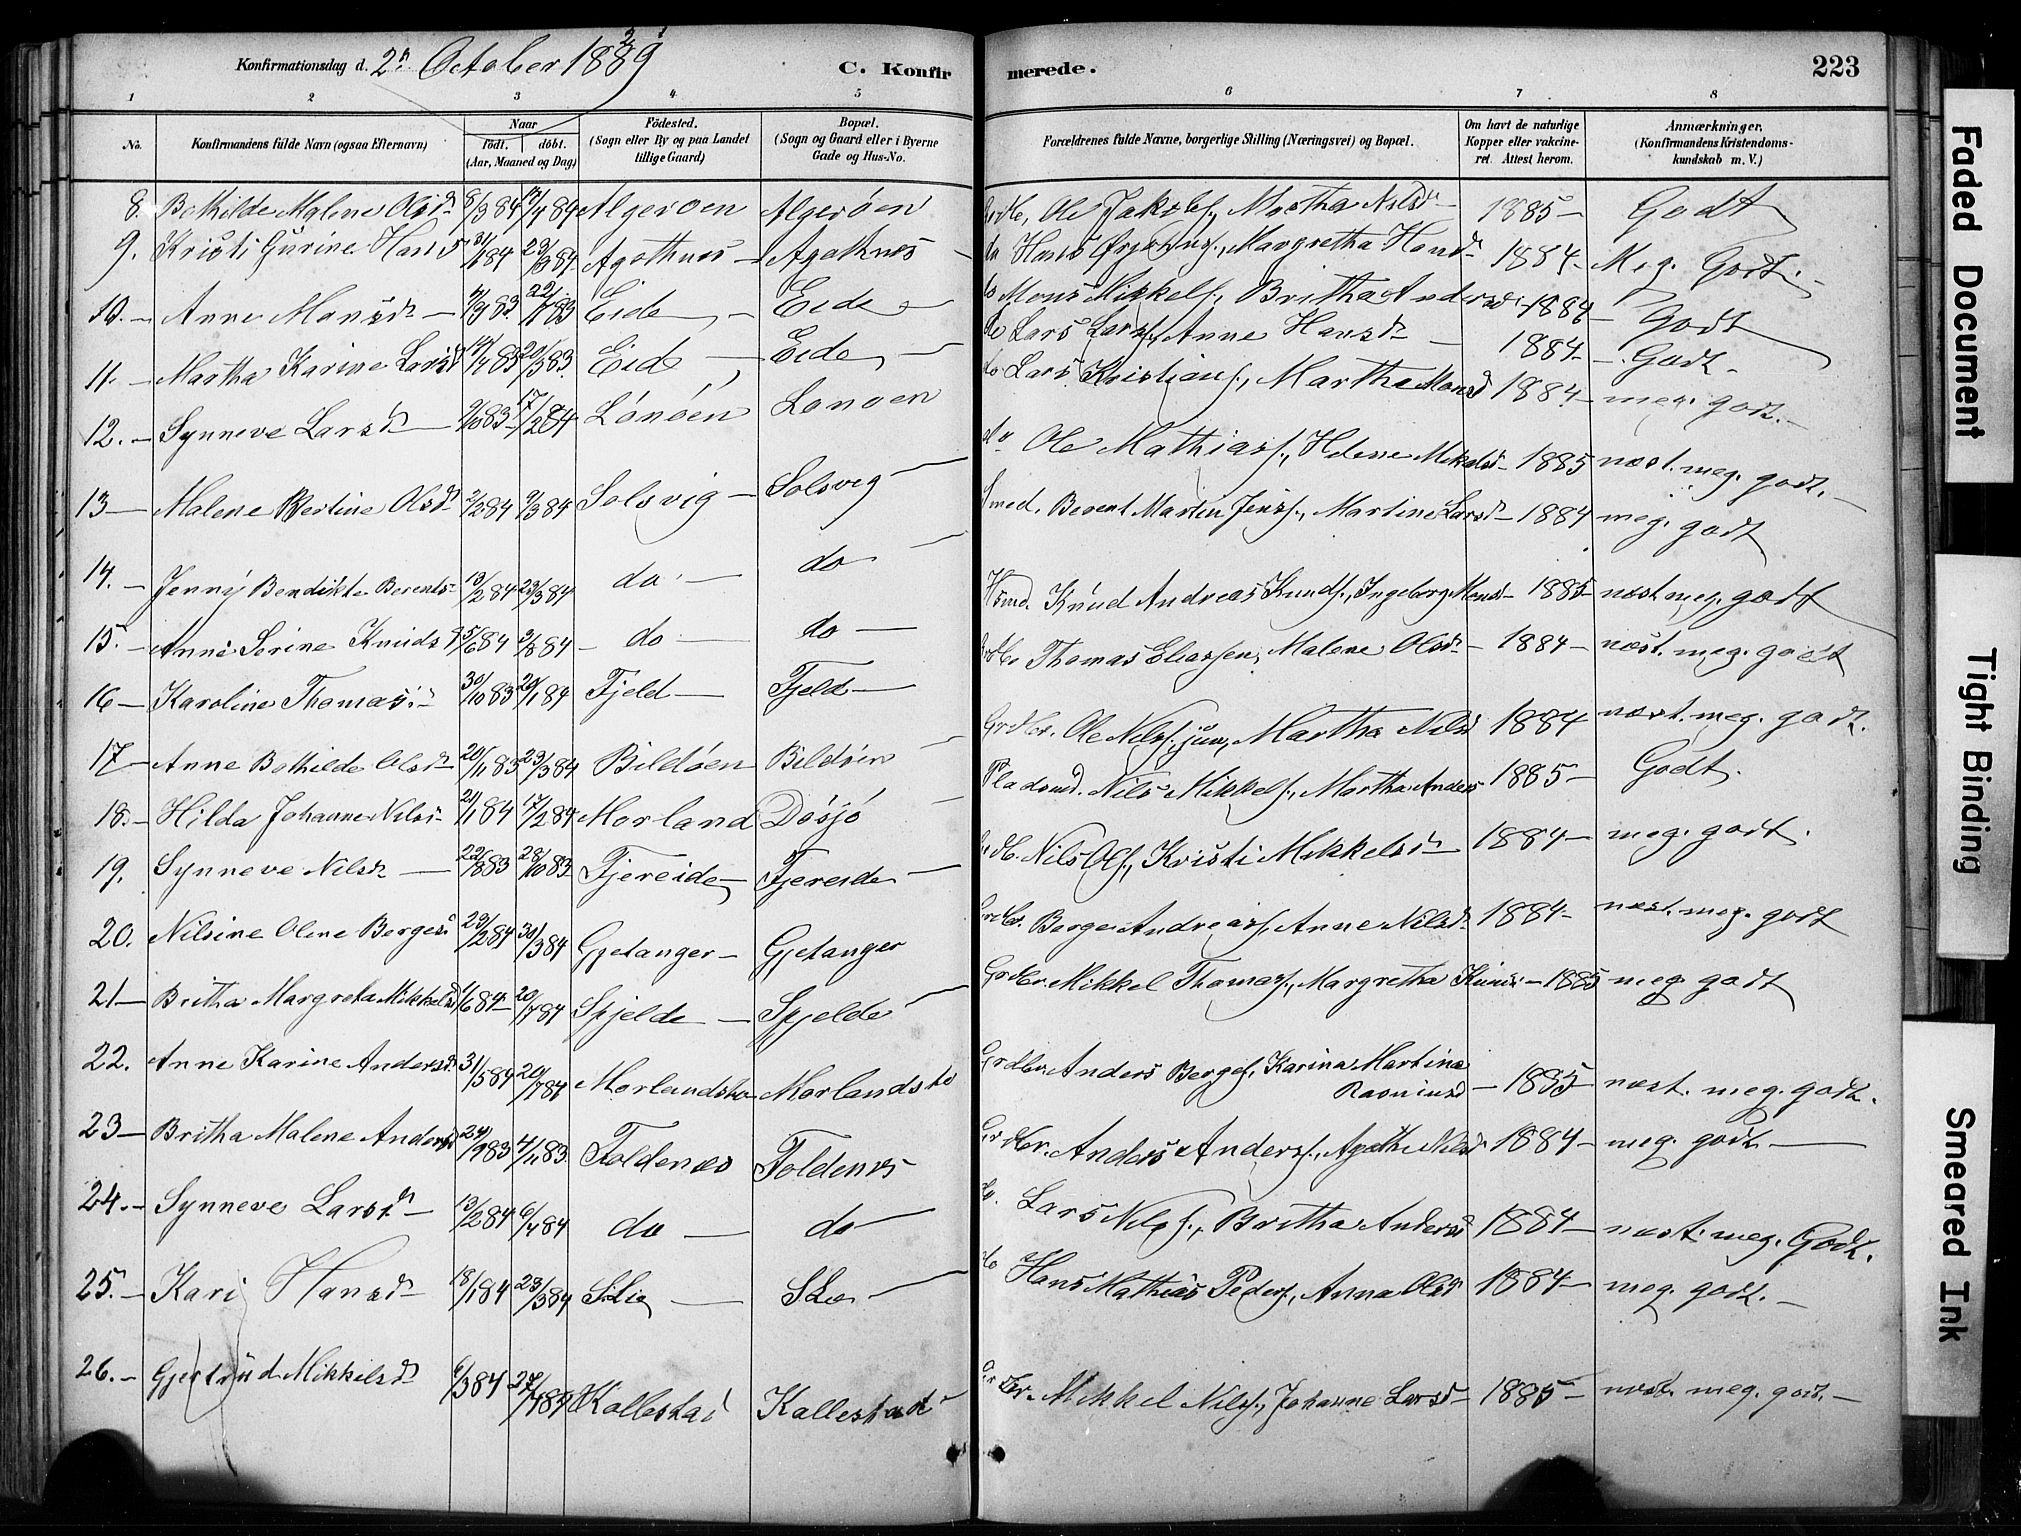 Konfirmationsdag d. 2n October 1889
C. Konfirmerede.
223
1 2 3 4 5 6 7 8
No. Konfirmandens fulde Navn (ogsaa Efternavn) Naar født. døbt. (Aar, Maaned og Dag) Fødested. (Sogn eller By og paa Landet tillige Gaard) Bopæl. (Sogn og Gaard eller i Byerne Gade og Hus-No. Forældrenes fulde Navne, borgerlige Stilling (Næringsvei) og Bopæl. Om havt de naturlige Kopper eller vakcineret. Attest herom. Anmærkninger. (Konfirmandens Kristendomskundskab m. V.)
8. Bothilde Malene Olsd 8/3 84 /4 84 Algerøen Algerøen Ole Jakobs., Martha Nilsd 1885 Godt
9. Kristi Gurine Hans 31/1 84 23/3 84 Agothnes Agothnes do Hans , Margretha Hansd 1884 Meg. Godt.
10. Anne Monsd /9 83 22/ 83 Eide Eide do Mons Mikkels., Britha Andersd 1884 Godt
11. Martha Karine Larsd 14/4 83 20/5 83 Eide Eide do Lars Lars., Anne Hansd 1884 Godt
12. Synneve Larsd 9/10 83 17/2 84 Lønøen Lønøen do Lars Kristians., Martha Monsd 1884 meg. godt.
13 Malene Bertine Olsd 2/2 84 9/3 84 Solsvig Solsvig do Ole Mathias., Helene Mikalsd 1885 næst. meg. godt.
14. Jenny Bendikte Berents 13/2 84 23/3 84 do do Smed. Berent Martin Jens., Martine Larsd 1884 meg. godt
15. Anne Serine Knudsd 5/6 84 3/8 84 do do Husmd. Knud Andreas Knuds., Ingeborg Monsd 1885 næst meg. godt
16 Karoline Thomas. 30/10 83 20/1 84 Fjeld Fjeld Thomas Eliassen, Malene Olsd 1884 næst. meg. godt
17 Anne Bothilde Olsd 20/11 83 23/3 84 Bildøen Bildøen Grdbr. Ole Nils. jun., Martha Nilsd 1884 næst. meg. godt.
18. Hilda Johanne Nils 21/1 84 17/2 84 Morland Døsjø Pladsmd. Nils Mikkels., Martha Anders 1885 Godt.
19. Synneve Nilsd 22/8 83 28/10 83 Fjereide Fjereide Nils Ols., Kristi Mikkelsd 1884 meg. godt.
20. Nilsine Olene Bergesd 29/2 84 30/3 84 Gjetanger Gjetanger Grdbr. Berge Andreas., Anne Nilsd 1884 næst. meg. godt
21 Britha Margreta Mikkelsd /6 84 20/7 84 Spjelde Spjelde Grdbr. Mikkel Thomas., Margretha Knuds 1885 meg. godt
22. Anne Karine Andersd 31/5 84 20/7 84 Morlandsto Morlandsto Grdbr. Anders Berges., Karina Martina Rasmusd 1885 næst. meg. godt.
23 Britha Malene Andersd 24/9 83 4/11 83 Foldenæs Foldenæs Grdbr. Anders Anders., Agathe Nilsd 1884 meg. godt.
24. Synneve Larsd 13/2 84 6/4 84 do do do Lars Nils., Britha Andersd 1884 næst. meg. Godt.
25. Kari Hansd 18/1 84 23/3 84 do Hans Mathias Peders., Anna Olsd 1884 meg. godt.
26. Gjertrud Mikkelsd 6/3 84 27/4 84 Kallestad Kallestad Grdbr. Mikkel Nils., Johanne Larsd 1885 næst. meg. godt.
Faded Document
Tight Binding
Smeared Ink